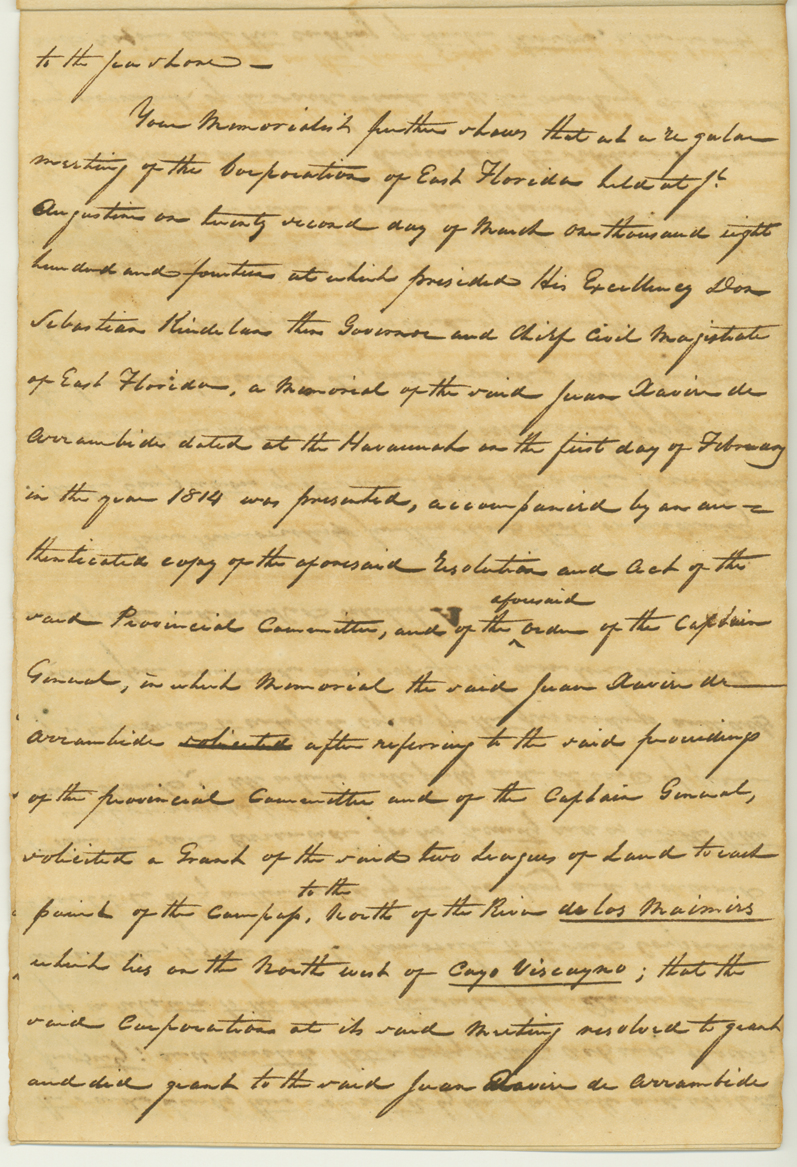 to the sea shore —
Your Memorialist further shows that at a regular
meeting of the Corporation of East Florida held at St.
Augustine on twenty second day of March one thousand eight
hundred and fourteen at which presided His Excellency Don
Sebastian Kindelan then Governor and Chief Civil Magistrate
of East Florida, a Memorial of the said Juan Xavier de
Arrambide dated at the Havannah on the first day of February
in the year 1814 was presented, accompanied by an au=
thenticated copy of the aforesaid Resolution and Act of the
said Provincial Committee, and of the aforesaid order of the Captain
General, in which Memorial the said Juan Xavier de
Arrambide solicited after referring to the said proceedings
of the provincial Committee and of the Captain General,
solicited a Grant of the said two Leagues of Land to each
point of the Compass, to the North of the River de los Maimies
which lies on the North west of Cayo Viscayno; that the
said Corporation at its said Meeting resolved to grant
and did grant to the said Juan Xavier de Arrambide